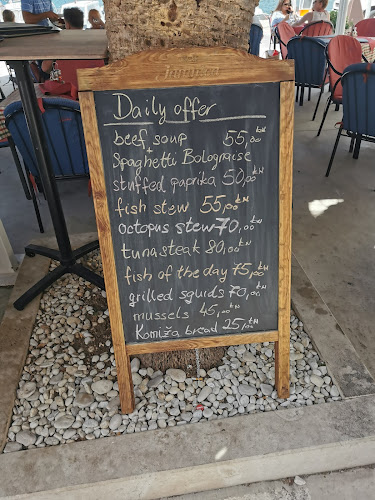 Daily offer
beef soup 55,00 kn
+
Spaghetti Bolognaise
stuffed paprika 50,00 kn
fish stew 55,00 kn
octopus stew 70,00 kn
tuna steak 80,00 kn
fish of the day 75,00 kn
grilled squids 70,00 kn
mussels 45,00 kn
Komiža bread 25,00 kn